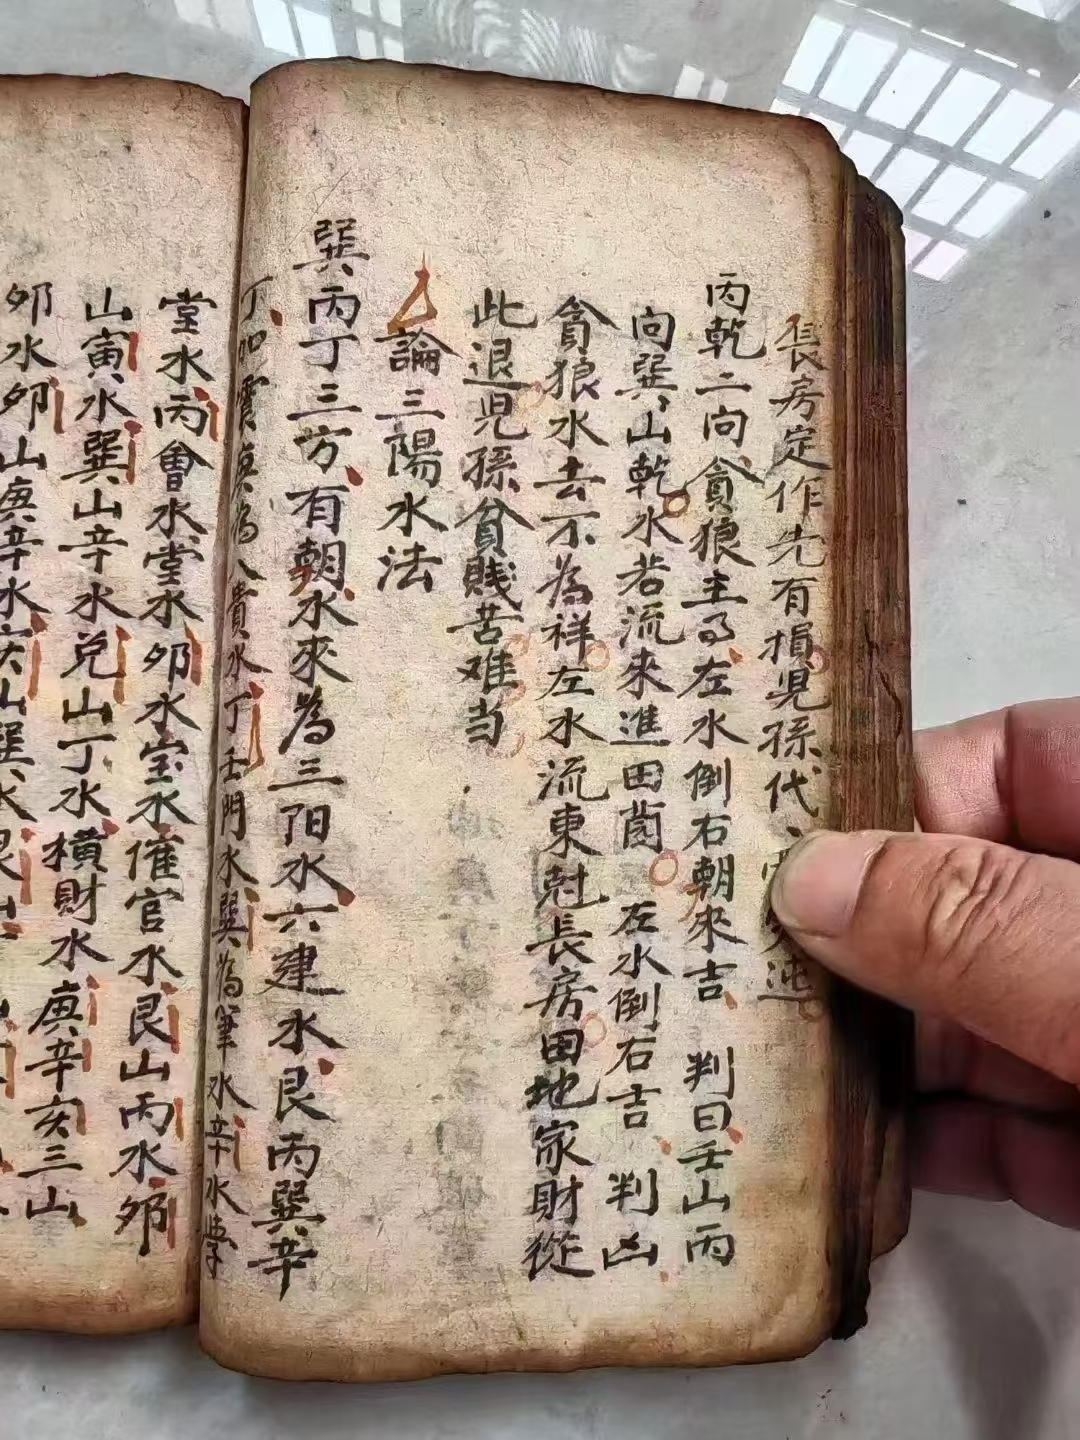 長房定作先有損児孫代、
丙乾二向貪狼主局左水倒右朝來吉 判曰壬山丙
向巽山乾水若流來進田茴 左水倒右吉 判凶
貪狼水去不為祥左水流東尅長房田地家財從
此退児孫貧賤苦难当
論三陽水法
巽丙丁三方有朝水來為三阳水六建水艮丙巽辛
丁加震庚為八貴水丁壬門水巽為筆水辛水學
堂水丙會水堂水夘水宝水催官水艮山丙水夘
山寅水巽山辛水兌山丁水横財水庚辛亥三山
夘水夘山庚辛水亥山巽水艮山